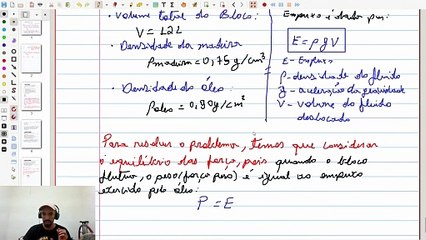 • Volume total do Bloco:
V = L2L
• Densidade da madeira
ρmadeira = 0,75 g/cm³
• Densidade do óleo:
ρóleo = 0,90 g/cm³
Empuxo é dado por:
E = ρ g V
E - Empuxo
ρ - densidade do fluido
g - aceleração da gravidade
V - volume do fluido
deslocado
Para resolver o problema, temos que considerar
o equilíbrio das força, pois quando o bloco
flutua, o peso (força peso) é igual ao empuxo
exercido pelo óleo:
P = E